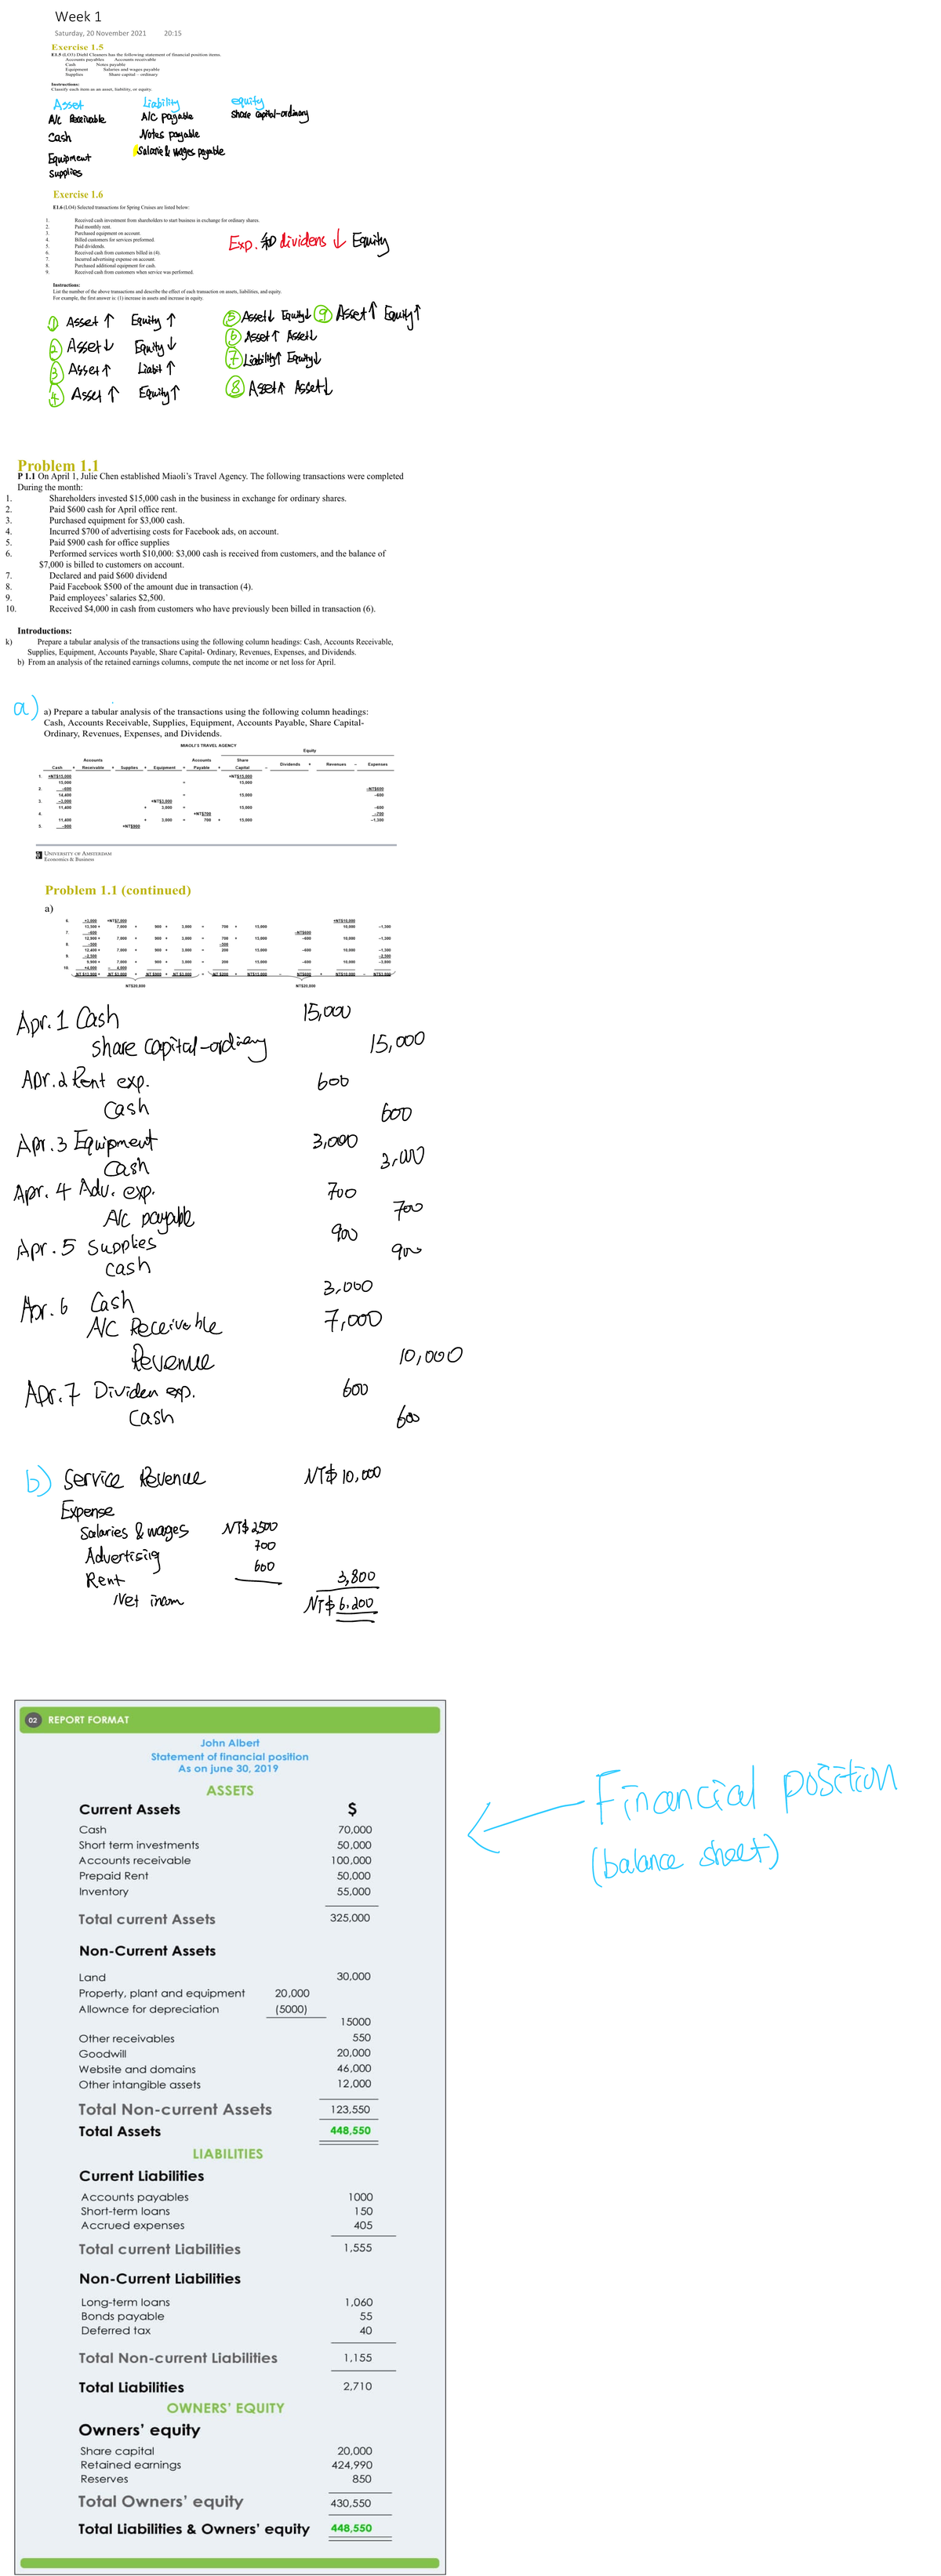 Week 1
Saturday, 20 November 2021 20:15
Exercise 1.5
E1.5 (LO3) Diehl Cleaners has the following statement of financial position items.
Accounts payable Accounts receivable
Cash Notes payable
Equipment Salaries and wages payable
Supplies Share capital – ordinary
Instructions:
Classify each item as an asset, liability, or equity.
Asset Liability equity
A/c Receivable A/C payable share capital-ordinary
Cash Notes payable
Equipment Salarie & wages payable
Supplies
Exercise 1.6
E1.6 (LO4) Selected transactions for Spring Cruises are listed below:
1. Received cash investment from shareholders to start business in exchange for ordinary shares.
2. Paid monthly rent.
3. Purchased equipment on account.
4. Billed customers for services performed.
5. Paid dividends.
6. Received cash from customers billed in (4).
7. Incurred advertising expense on account.
8. Purchased additional equipment for cash.
9. Received cash from customers when service was performed.
Exp. dividens ↓ Equity
Instructions:
List the number of the above transactions and describe the effect of each transaction on assets, liabilities, and equity.
For example, the first answer is: (1) increase in assets and increase in equity.
① Asset ↑ Equity ↑ ⑤ Asset↓ Equity↓ ⑨ Asset↑ Equity↑
② Asset↓ Equity↓ ⑥ Asset↑ Asset↓
③ Asset↑ Liabit ↑ ⑦ Liability↑ Equity↓
④ Asset ↑ Equity↑ ⑧ Asset↑ Asset↓
Problem 1.1
P 1.1 On April 1, Julie Chen established Miaoli's Travel Agency. The following transactions were completed
During the month:
1. Shareholders invested $15,000 cash in the business in exchange for ordinary shares.
2. Paid $600 cash for April office rent.
3. Purchased equipment for $3,000 cash.
4. Incurred $700 of advertising costs for Facebook ads, on account.
5. Paid $900 cash for office supplies
6. Performed services worth $10,000: $3,000 cash is received from customers, and the balance of
$7,000 is billed to customers on account.
7. Declared and paid $600 dividend
8. Paid Facebook $500 of the amount due in transaction (4).
9. Paid employees' salaries $2,500.
10. Received $4,000 in cash from customers who have previously been billed in transaction (6).
Introductions:
k) Prepare a tabular analysis of the transactions using the following column headings: Cash, Accounts Receivable,
Supplies, Equipment, Accounts Payable, Share Capital- Ordinary, Revenues, Expenses, and Dividends.
b) From an analysis of the retained earnings columns, compute the net income or net loss for April.
a)
a) Prepare a tabular analysis of the transactions using the following column headings:
Cash, Accounts Receivable, Supplies, Equipment, Accounts Payable, Share Capital-
Ordinary, Revenues, Expenses, and Dividends.
MIAOLI'S TRAVEL AGENCY
Equity
Accounts Accounts Share
Cash + Receivable + Supplies + Equipment = Payable + Capital – Dividends + Revenues – Expenses
1. +NT$15,000 +NT$15,000
15,000 = 15,000
2. –600 –NT$600
14,400 15,000 –600
3. –3,000 +NT$3,000
11,400 + 3,000 = 15,000 –600
4. +NT$700 –700
11,400 + 3,000 = 700 + 15,000 –1,300
5. –900 +NT$900
UNIVERSITY OF AMSTERDAM
Economics & Business
Problem 1.1 (continued)
a)
6. +3,000 +NT$7,000 +NT$10,000
13,500 + 7,000 + 900 + 3,000 = 700 + 15,000 10,000 –1,300
7. –600 –NT$600
12,900 + 7,000 + 900 + 3,000 = 700 + 15,000 –600 10,000 –1,300
8. –500 –500
12,400 + 7,000 + 900 + 3,000 = 200 + 15,000 –600 10,000 –1,300
9. –2,500 –2,500
9,900 + 7,000 + 900 + 3,000 = 200 + 15,000 –600 10,000 –3,800
10. +4,000 – 4,000
NT$20,800 NT$20,800
Apr. 1 Cash 15,000
share capital-ordinary 15,000
Apr. 2 Rent exp. 600
Cash 600
Apr. 3 Equipment 3,000
Cash 3,000
Apr. 4 Adv. exp. 700
A/C payable 700
Apr. 5 supplies 900
cash 900
Apr. 6 Cash 3,000
A/C Receivable 7,000
Revenue 10,000
Apr. 7 Dividen exp. 600
Cash 600
b) Service Revenue NT$ 10,000
Expense
Salaries & wages NT$ 2500
Advertising 700
Rent 600 3,800
Net incom NT$ 6.200
02 REPORT FORMAT
John Albert
Statement of financial position
As on june 30, 2019
ASSETS
Current Assets $
Cash 70,000
Short term investments 50,000
Accounts receivable 100,000
Prepaid Rent 50,000
Inventory 55,000
Total current Assets 325,000
Non-Current Assets
Land 30,000
Property, plant and equipment 20,000
Allownce for depreciation (5000)
15000
Other receivables 550
Goodwill 20,000
Website and domains 46,000
Other intangible assets 12,000
Total Non-current Assets 123,550
Total Assets 448,550
LIABILITIES
Current Liabilities
Accounts payables 1000
Short-term loans 150
Accrued expenses 405
Total current Liabilities 1,555
Non-Current Liabilities
Long-term loans 1,060
Bonds payable 55
Deferred tax 40
Total Non-current Liabilities 1,155
Total Liabilities 2,710
OWNERS' EQUITY
Owners' equity
Share capital 20,000
Retained earnings 424,990
Reserves 850
Total Owners' equity 430,550
Total Liabilities & Owners' equity 448,550
Financial position
(balance sheet)